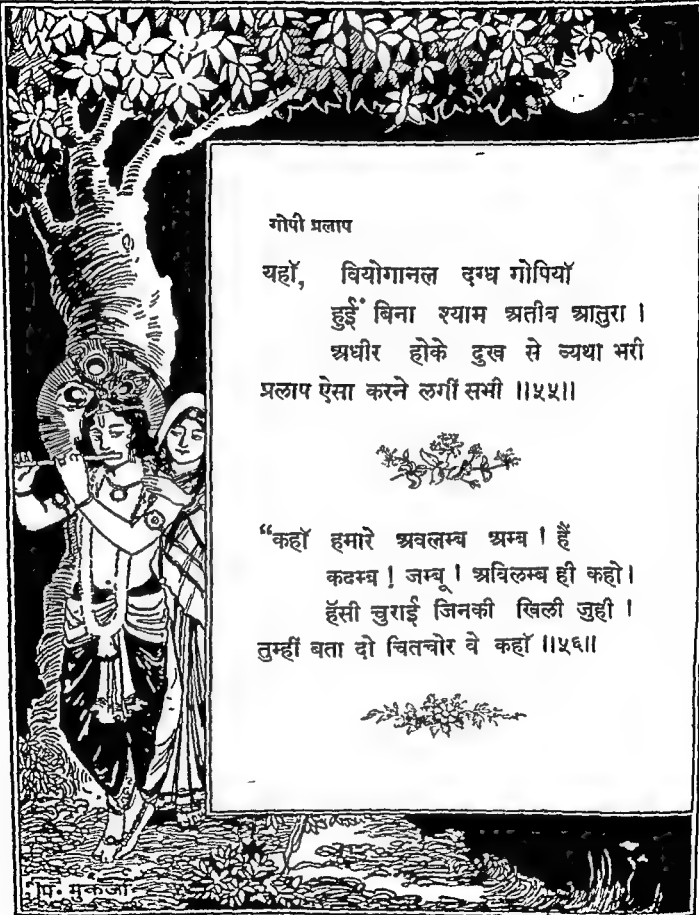 गोपी प्रलाप
यहाँ, वियोगानल दग्ध गोपियाँ
हुईं बिना श्याम अतीव आतुरा ।
अधीर होके दुख से व्यथा भरी
प्रलाप ऐसा करने लगीं सभी ॥५५॥
“कहाँ हमारे अवलम्ब अम्ब ! हैं
कदम्ब ! जम्बू ! अविलम्ब ही कहो ।
हँसी चुराई जिनकी खिली जुही !
तुम्हीं बता दो चितचोर वे कहाँ ॥५६॥
पि. मुकर्जी